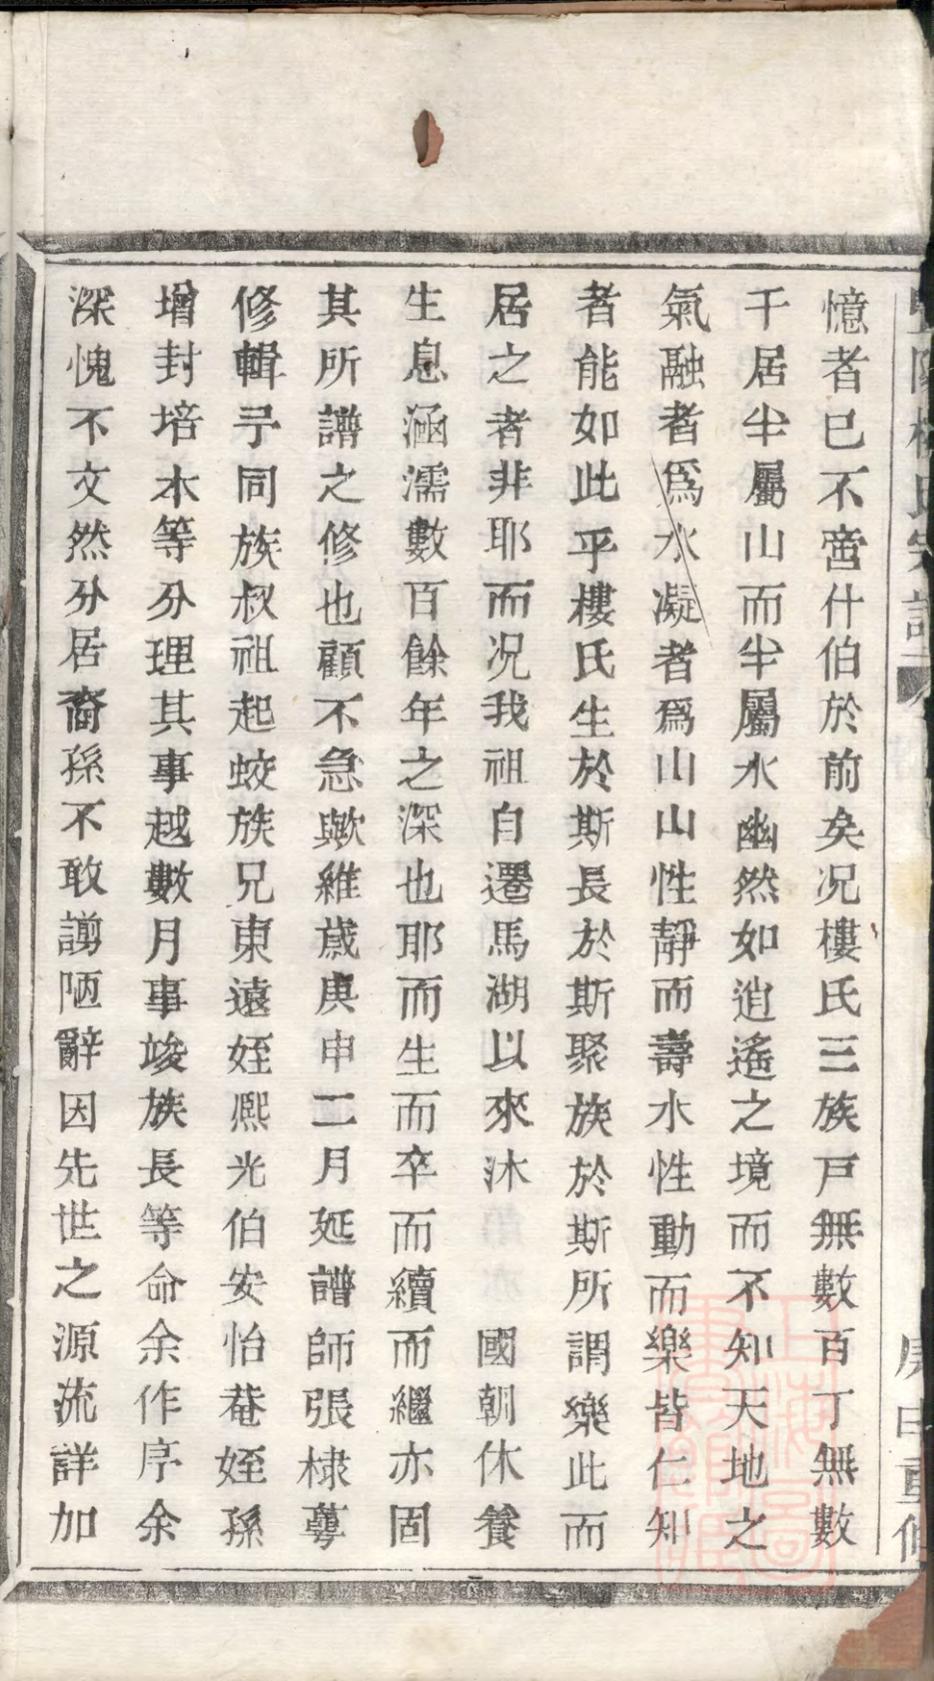 暨陽樓氏宗譜
庚申重修
憶者已不啻什伯於前矣况樓氏三族戸無數百丁無數
千居半屬山而半屬水幽然如逍遙之境而不知天地之
氣融者爲水凝者爲山山性靜而壽水性動而樂皆仁知
者能如此乎樓氏生於斯長於斯聚族於斯所謂樂此而
居之者非耶而况我祖自遷馬湖以來沐 國朝休養
生息涵濡數百餘年之深也耶而生而卒而續而繼亦固
其所譜之修也顧不急歟維歲庚申二月延譜師張棣蕚
修輯予同族叔祖起蛟族兄東遠姪熙光伯安怡菴姪孫
增封培木等分理其事越數月事竣族長等命余作序余
深愧不文然分居裔孫不敢謭陋辭因先世之源流詳加